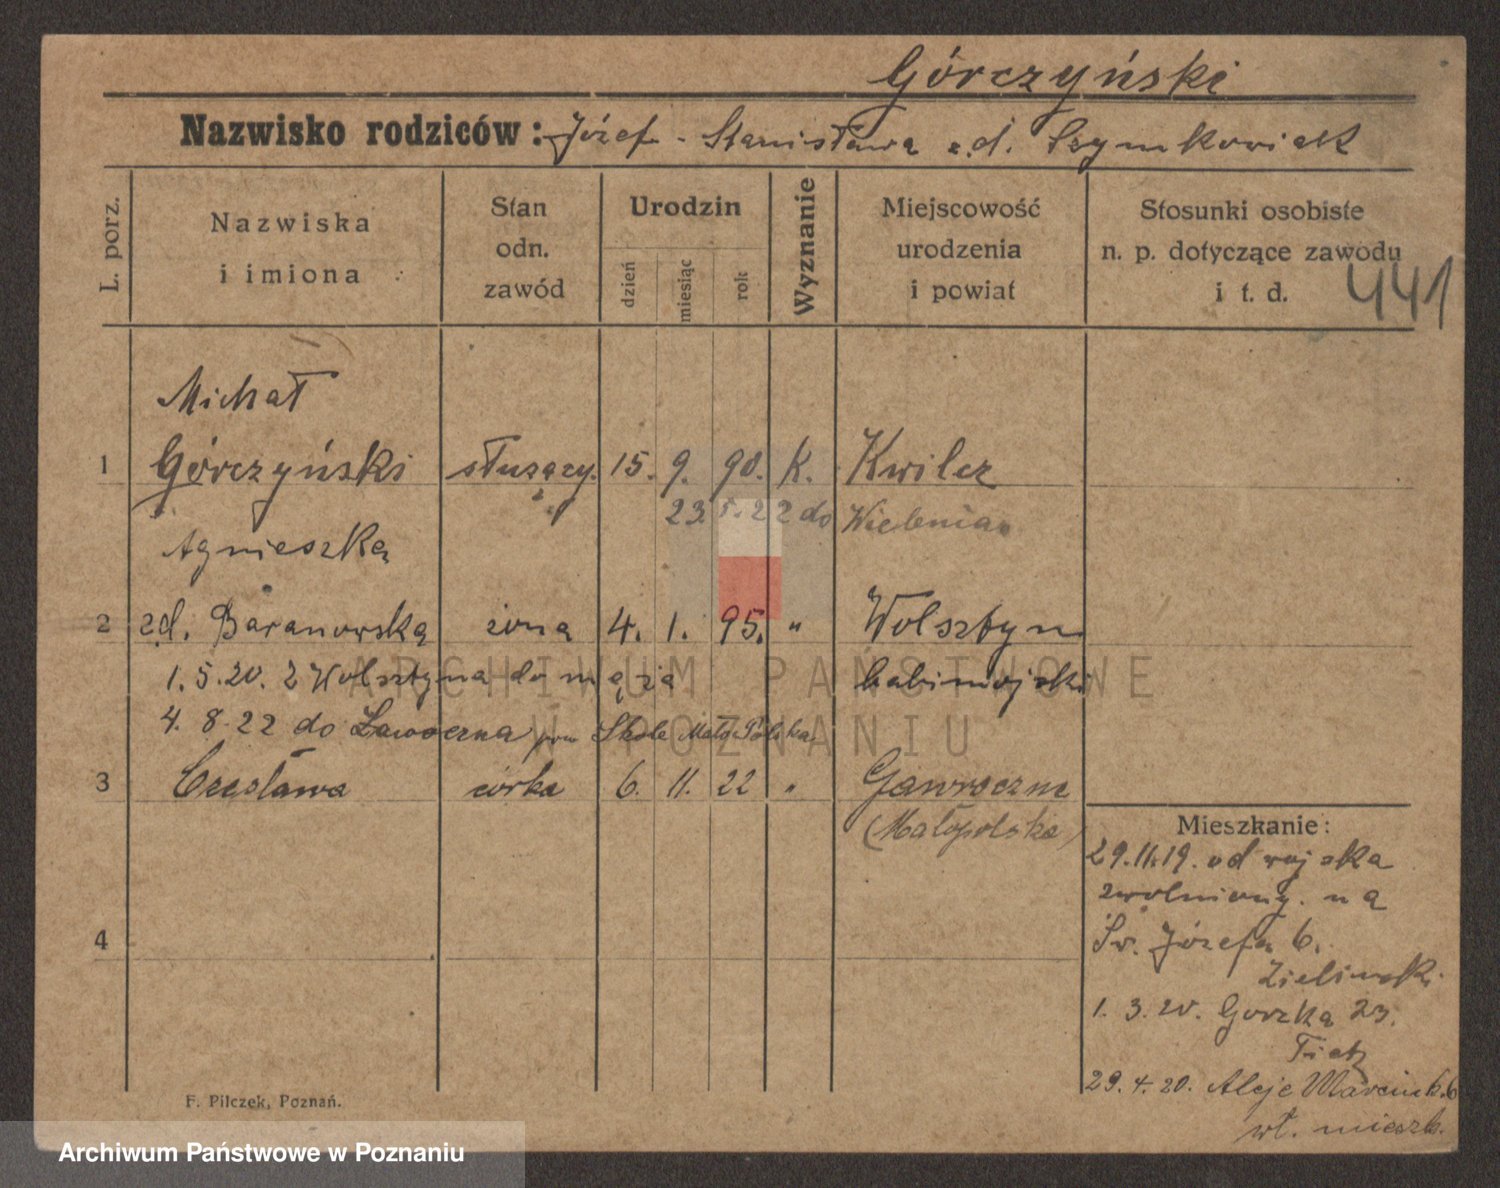 Górczyński
Nazwisko rodziców: Józef - Stanisława z.d. Szymkowiak
L. porz.
Nazwiska
i imiona
Stan
odn.
zawód
Urodzin
dzień
miesiąc
rok
Wyznanie
Miejscowość
urodzenia
i powiat
Stosunki osobiste
n. p. dotyczące zawodu
i t. d.
441
Michał
1 Górczyński służący. 15. 9. 90. K. Kwilcz
23 5. 22 do
Agnieszka
2 zd. Baranowska żona 4. 1. 95. " Wolsztyn
1.5.20. z Wolsztyna do męża babimojski
4. 8 22 do Ławoczna pow Skole Mało-Polska
3 Czesława córka 6. 11. 22 "
(Małopolska)
4
Mieszkanie:
29.11.19. od wojska
zwolniony. na
Św. Józefa 6.
1. 3. 20. Gorzka 23.
29. 4. 20. Aleje Marcink. 6
wł. mieszk.
F. Pilczek, Poznań.
ARCHIWUM PAŃSTWOWE
W POZNANIU
Archiwum Państwowe w Poznaniu